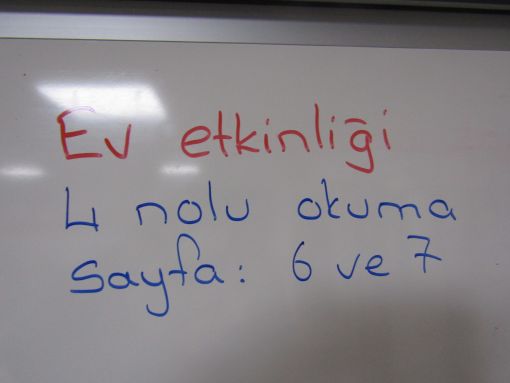 Ev etkinliği
4 nolu okuma
sayfa: 6 ve 7